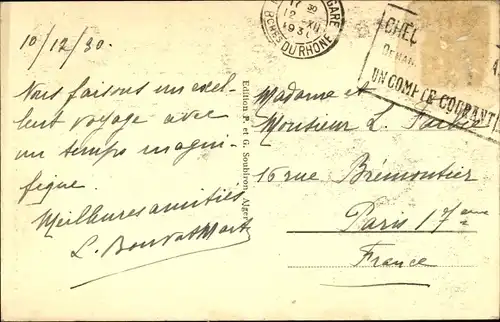 10/12/30.
Nous faisons un excel-
lent voyage avec
un temps magni-
fique.
Meilleures amitiés
L.
Edition P. et G. Soubiron, Alger
GARE
17 30
12 XII
1930
BCHES DU RHONE
UN COMPTE COURANT
Madame et
Monsieur L.
16 rue Brémontier
Paris 17eme
France